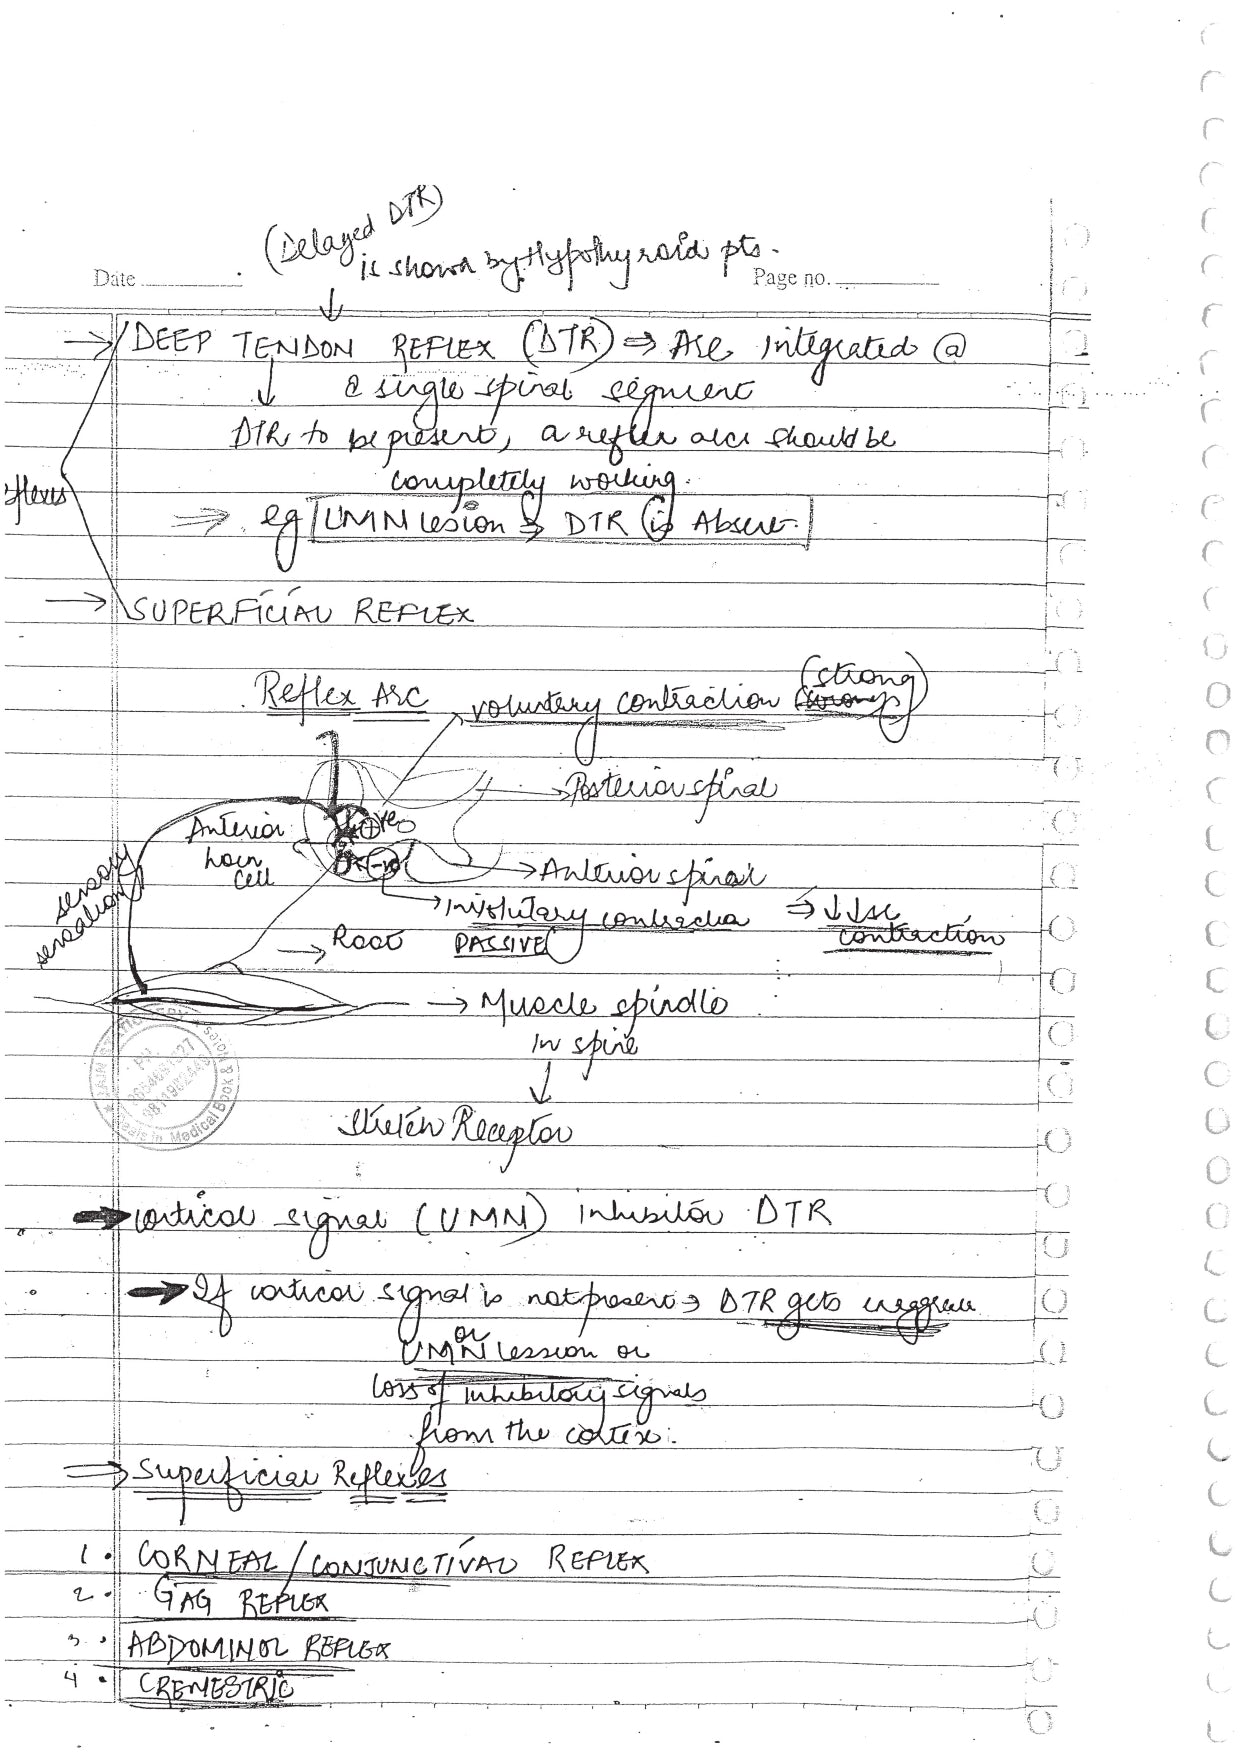 (Delayed DTR)
is shown by Hypothyroid pts.
Date
Page no.
DEEP TENDON REFLEX (DTR) ⇒ Are Integrated @
a single spinal segment
DTR to be present, a reflex arc should be
completely working.
⇒ eg UMN lesion → DTR is Absent.
SUPERFICIAL REFLEX
Reflex Arc
voluntary contraction (strong)
→ Posterior spinal
Anterior
horn
cell
+ve
→ Anterior spinal
sensory
sensation
→ Involutary contraction ⇒ ↓↓se
contraction
PASSIVE
→ Root
→ Muscle spindle
in spine
↓
Stretch Receptor
JAIN STATIONERY
Deals in Medical Book & Notes
→ cortical signal (UMN) inhibitor DTR
→ If cortical signal is not present → DTR gets
or
UMN lession or
loss of inhibitory signals
from the cortex.
⇒ Superficial Reflexes
1. CORNEAL/CONJUNCTIVAL REFLEX
2. GAG REFLEX
3. ABDOMINOL REFLEX
4. CREMESTRIC